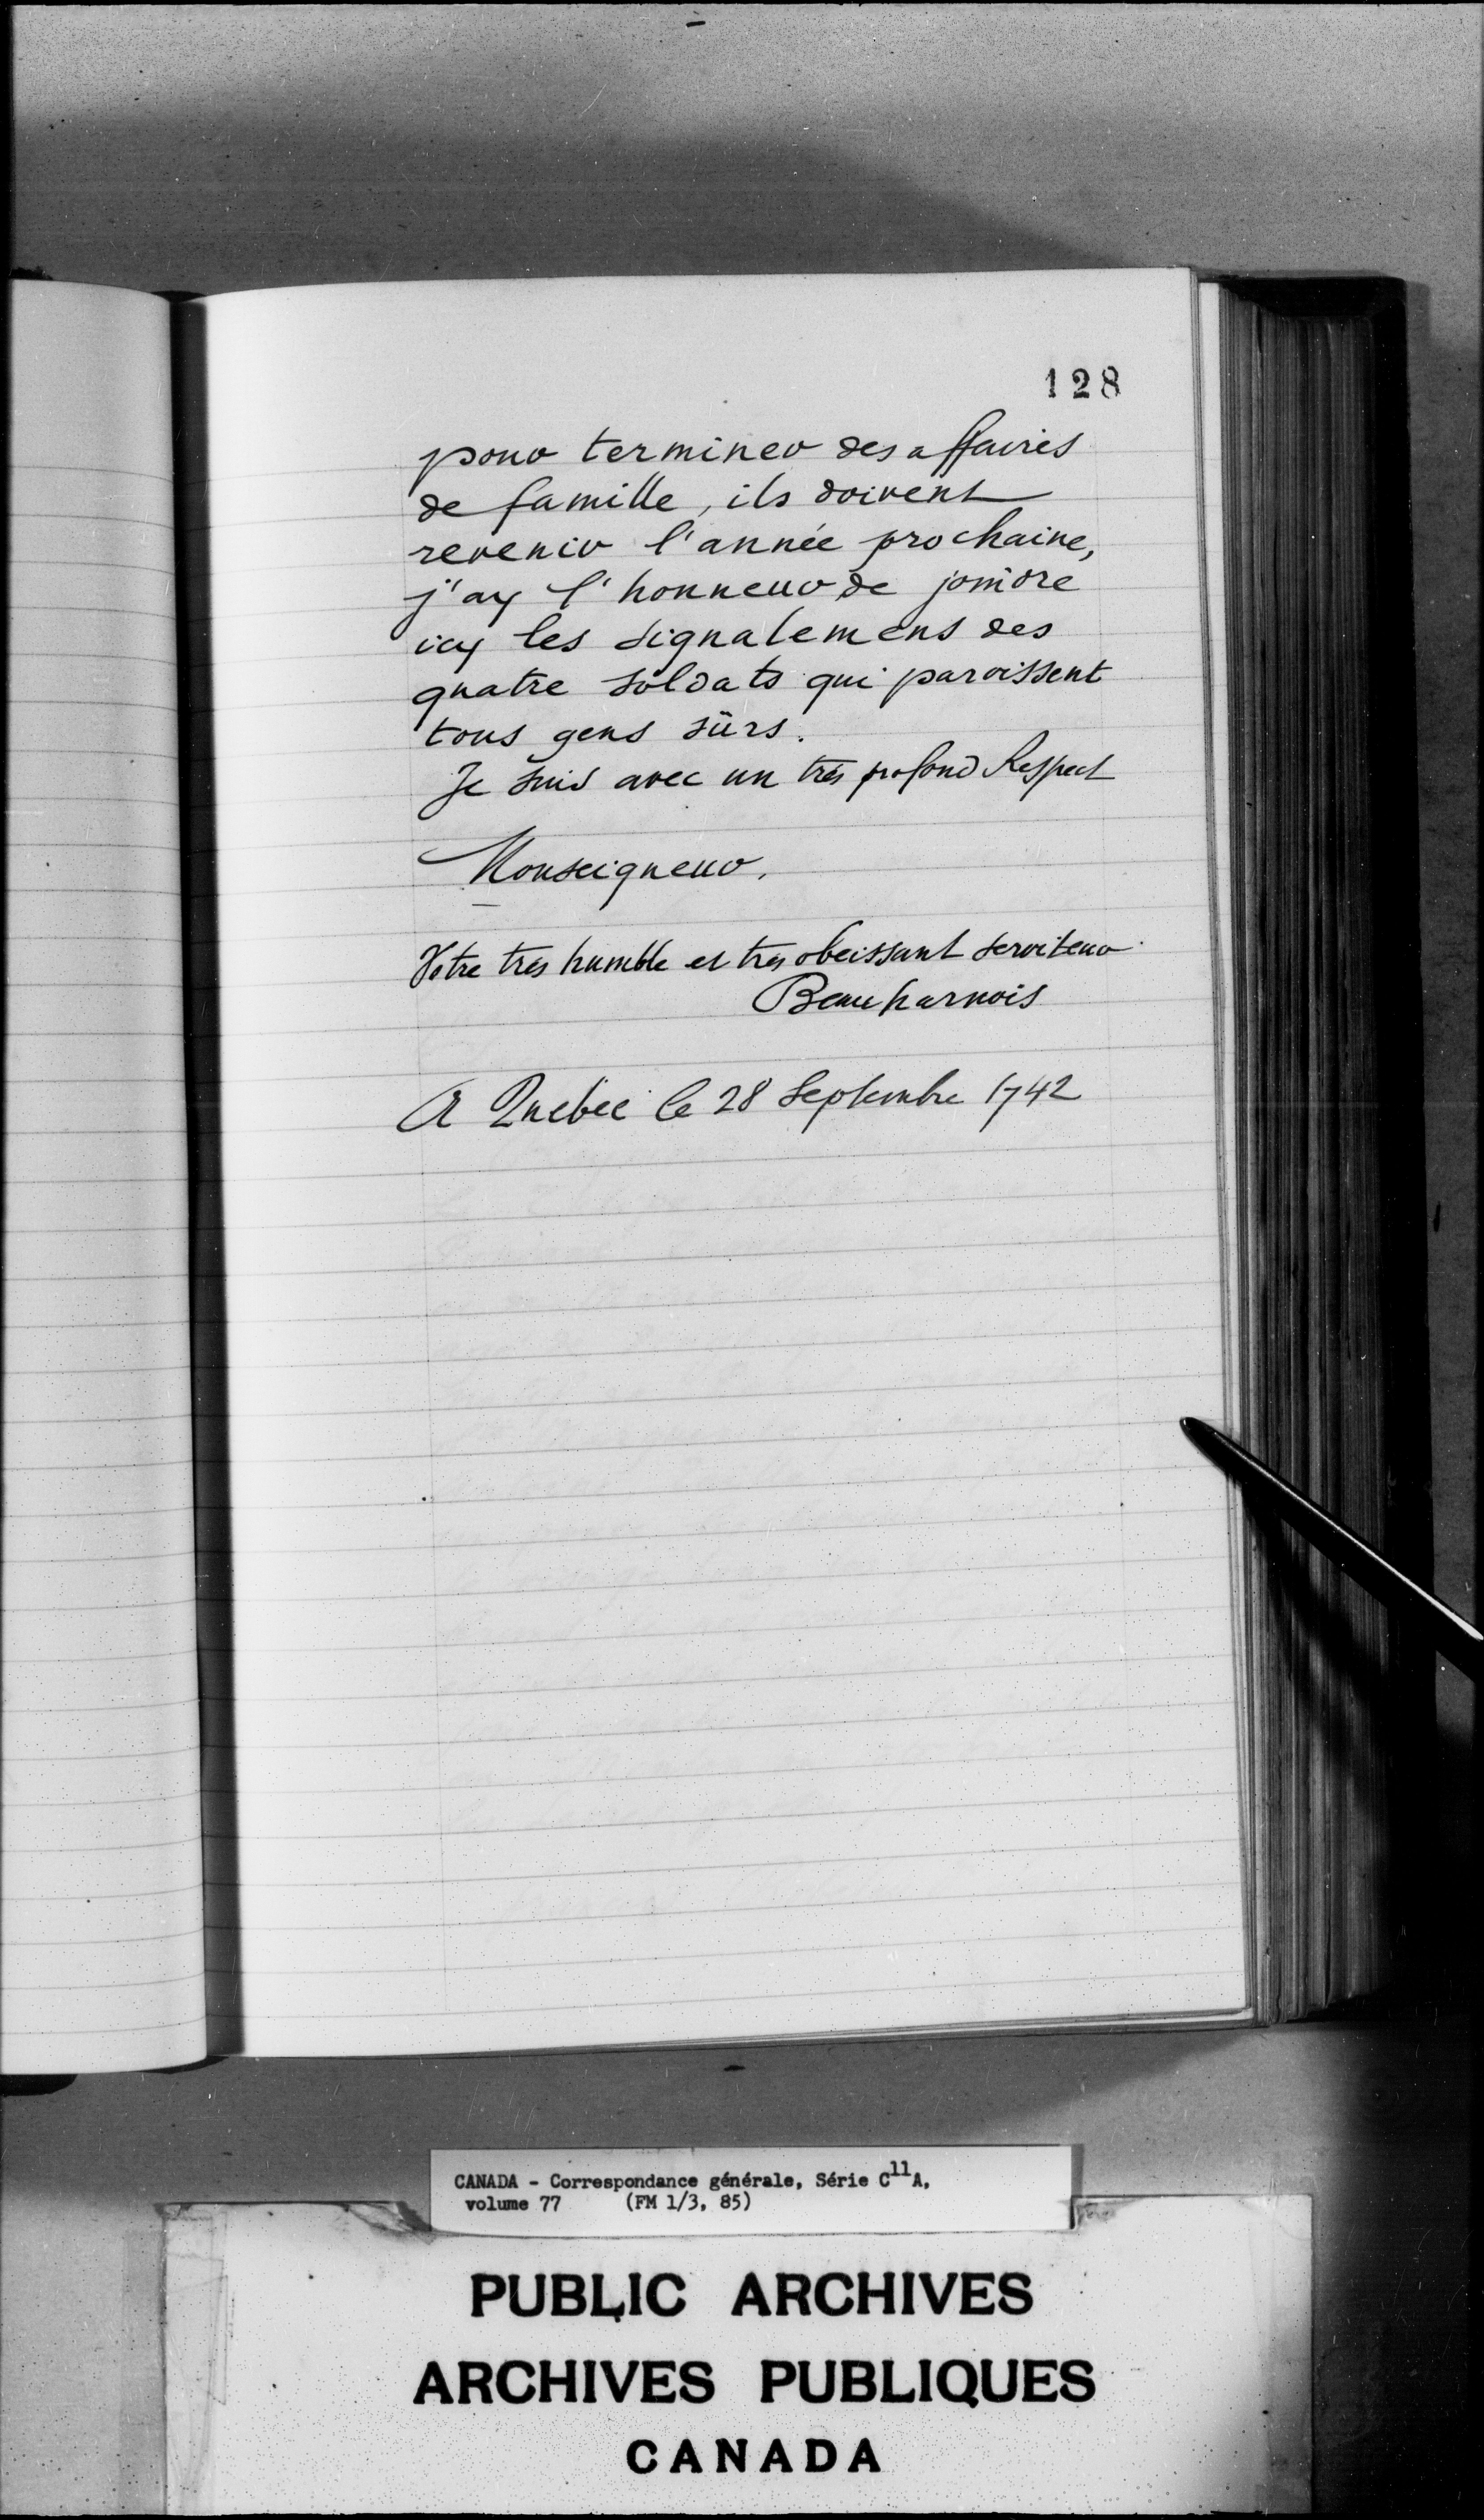 128
pour terminer des affaires
de famille, ils doivent
revenir l'année prochaine,
j'ay l'honneur de joindre
icy les signalemens des
quatre soldats qui paroissent
tous gens sûrs.
Je suis avec un très profond Respect
Monseigneur.
Votre très humble et très obeissant serviteur
Beauharnois
A Quebec le 28 Septembre 1742
CANADA - Correspondance générale, Série C11A,
volume 77 (FM 1/3, 85)
PUBLIC ARCHIVES
ARCHIVES PUBLIQUES
CANADA